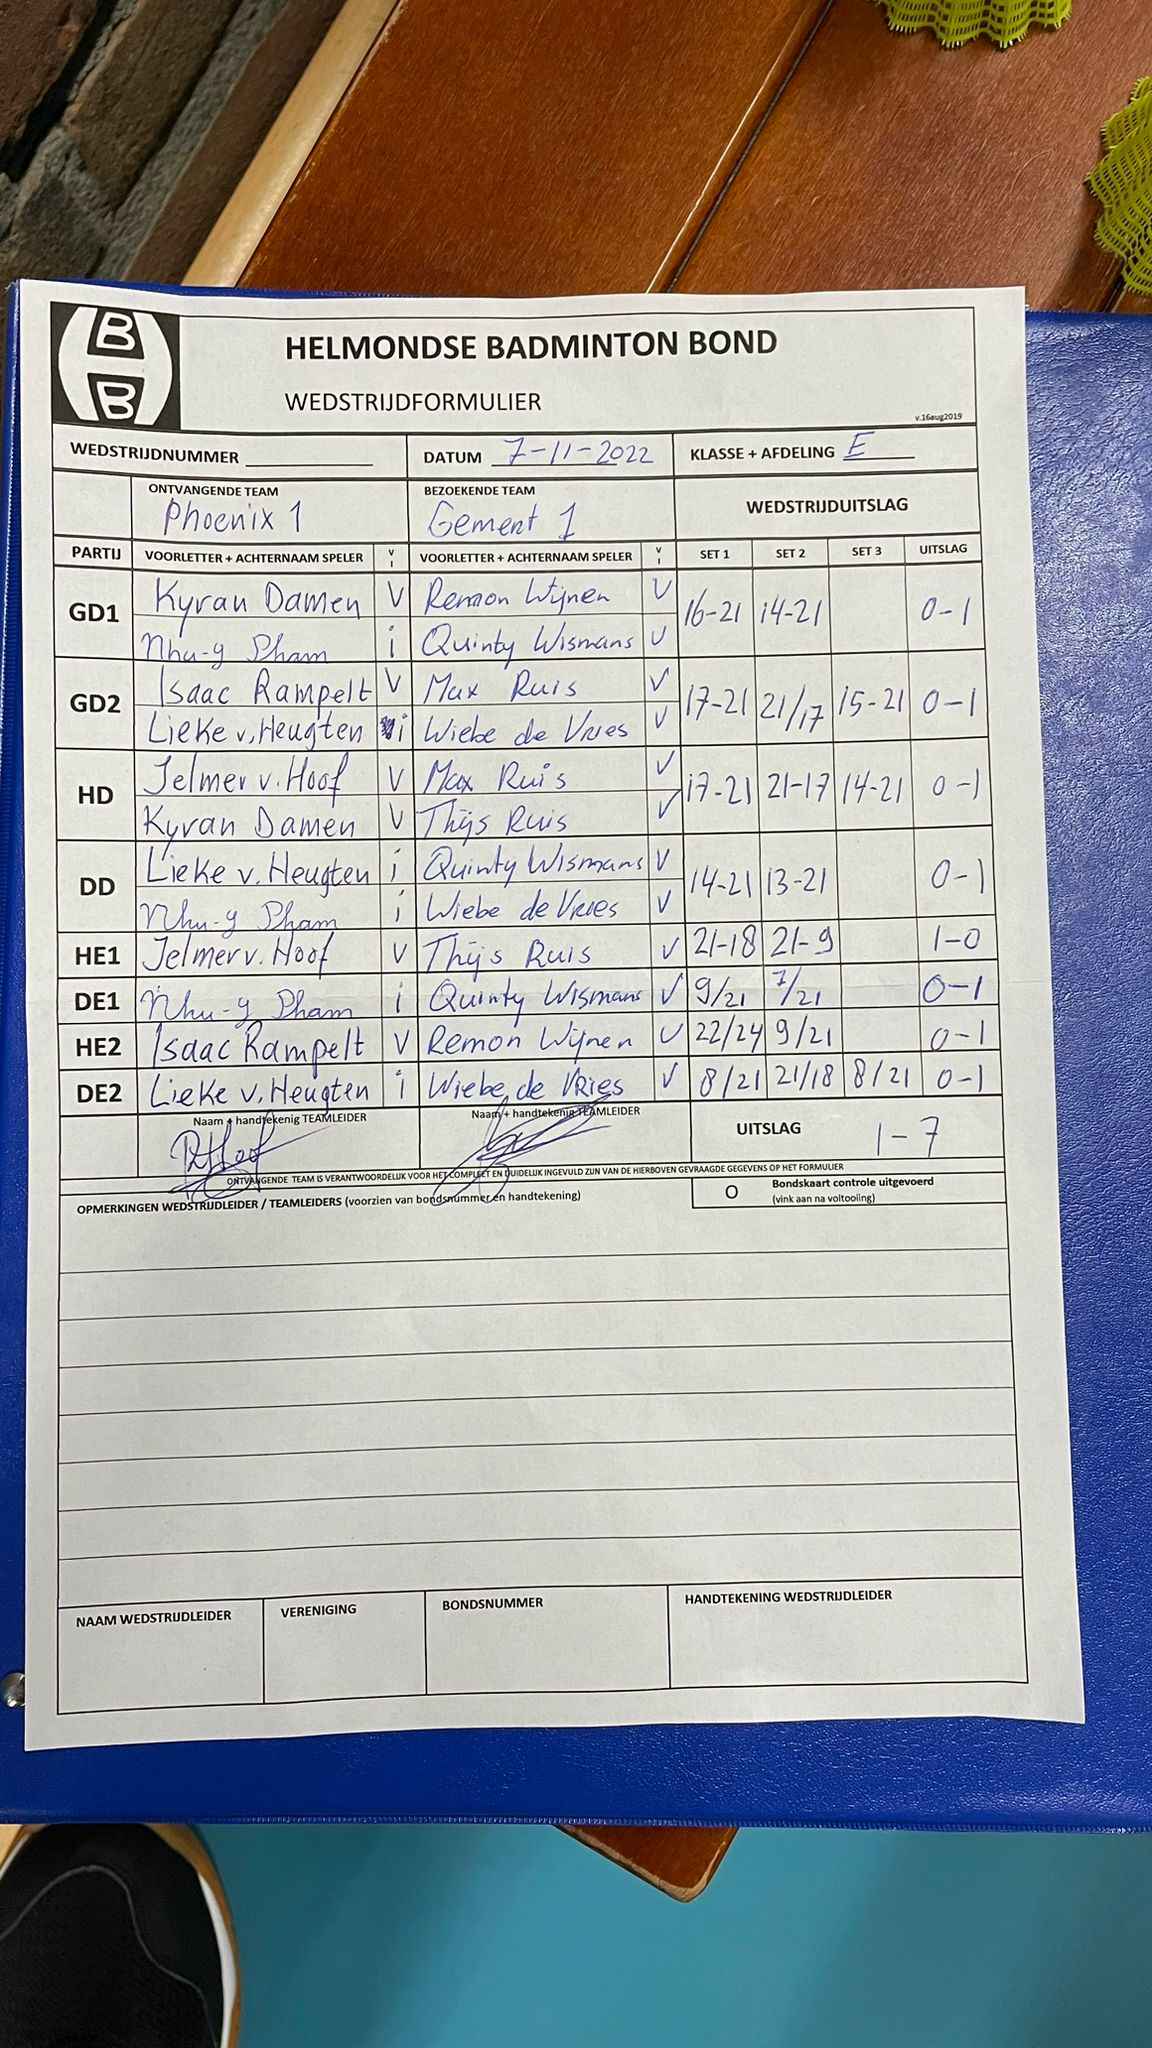 B
B
HELMONDSE BADMINTON BOND
WEDSTRIJDFORMULIER
v.16aug2019
WEDSTRIJDNUMMER DATUM 7-11-2022 KLASSE + AFDELING E
ONTVANGENDE TEAM BEZOEKENDE TEAM WEDSTRIJDUITSLAG
Phoenix 1 Gement 1
PARTIJ VOORLETTER + ACHTERNAAM SPELER V I VOORLETTER + ACHTERNAAM SPELER V I SET 1 SET 2 SET 3 UITSLAG
GD1 Kyran Damen V Remon Wijnen V 16-21 14-21 0-1
Nhu-y Pham i Quinty Wismans V
GD2 Isaac Rampelt V Max Ruis V 17-21 21/17 15-21 0-1
Lieke v. Heugten i Wiebe de Vries V
HD Jelmer v. Hoof V Max Ruis V 17-21 21-17 14-21 0-1
Kyran Damen V Thijs Ruis V
DD Lieke v. Heugten i Quinty Wismans V 14-21 13-21 0-1
Nhu-y Pham i Wiebe de Vries V
HE1 Jelmer v. Hoof V Thijs Ruis V 21-18 21-9 1-0
DE1 Nhu-y Pham i Quinty Wismans V 9/21 7/21 0-1
HE2 Isaac Rampelt V Remon Wijnen V 22/24 9/21 0-1
DE2 Lieke v. Heugten i Wiebe de Vries V 8/21 21/18 8/21 0-1
Naam + handtekenig TEAMLEIDER Naam + handtekenig TEAMLEIDER UITSLAG 1-7
ONTVANGENDE TEAM IS VERANTWOORDELIJK VOOR HET COMPLEET EN DUIDELIJK INGEVULD ZIJN VAN DE HIERBOVEN GEVRAAGDE GEGEVENS OP HET FORMULIER
OPMERKINGEN WEDSTRIJDLEIDER / TEAMLEIDERS (voorzien van bondsnummer en handtekening)
O Bondskaart controle uitgevoerd
(vink aan na voltooiing)
NAAM WEDSTRIJDLEIDER VERENIGING BONDSNUMMER HANDTEKENING WEDSTRIJDLEIDER